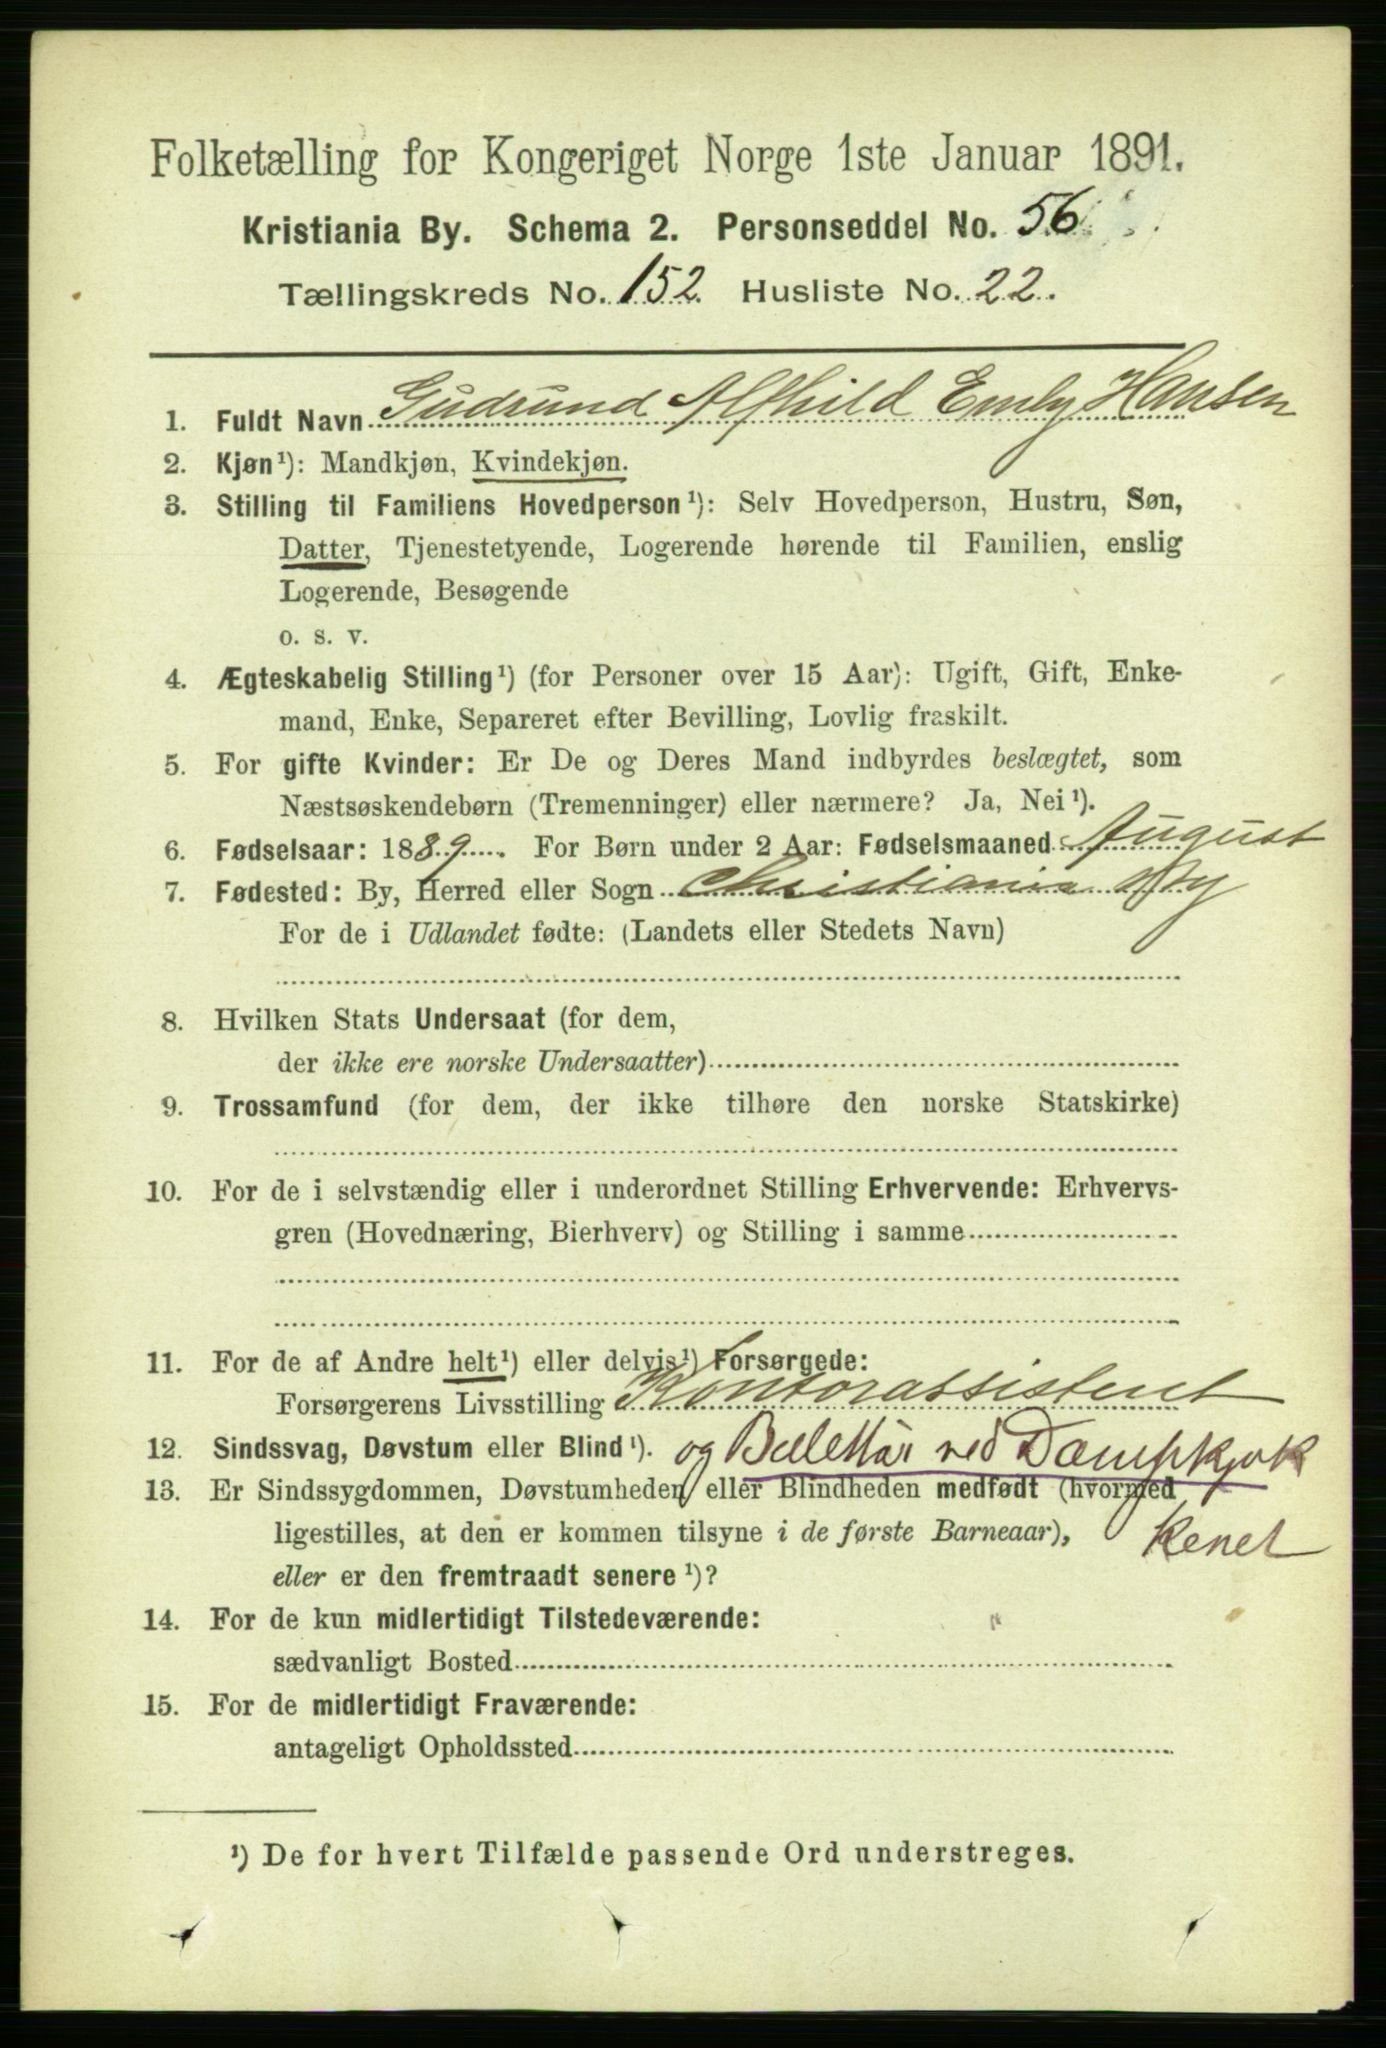 Folketælling for Kongeriget Norge 1ste Januar 1891.
Kristiania By. Schema 2. Personseddel No. 56
Tællingskreds No. 152. Husliste No. 22.
1. Fuldt Navn Gudrund Alfhild Emly Hansen
2. Kjøn¹): Mandkjøn, Kvindekjøn.
3. Stilling til Familiens Hovedperson¹): Selv Hovedperson, Hustru, Søn,
Datter, Tjenestetyende, Logerende hørende til Familien, enslig
Logerende, Besøgende
o. s. v.
4. Ægteskabelig Stilling¹) (for Personer over 15 Aar): Ugift, Gift, Enke-
mand, Enke, Separeret efter Bevilling, Lovlig fraskilt.
5. For gifte Kvinder: Er De og Deres Mand indbyrdes beslægtet, som
Næstsøskendebørn (Tremenninger) eller nærmere? Ja, Nei¹).
6. Fødselsaar: 1889. For Børn under 2 Aar: Fødselsmaaned August
7. Fødested: By, Herred eller Sogn Christiania By
For de i Udlandet fødte: (Landets eller Stedets Navn)
8. Hvilken Stats Undersaat (for dem,
der ikke ere norske Undersaatter)
9. Trossamfund (for dem, der ikke tilhøre den norske Statskirke)
10. For de i selvstændig eller i underordnet Stilling Erhvervende: Erhvervs-
gren (Hovednæring, Bierhverv) og Stilling i samme
11. For de af Andre helt¹) eller delvis¹) Forsørgede:
Forsørgerens Livsstilling Kontorassistent
12. Sindssvag, Døvstum eller Blind¹). og Billettør ved Dampkjøk
13. Er Sindssygdommen, Døvstumheden eller Blindheden medfødt (hvormed
ligestilles, at den er kommen tilsyne i de første Barneaar), kenet
eller er den fremtraadt senere¹)?
14. For de kun midlertidigt Tilstedeværende:
sædvanligt Bosted
15. For de midlertidigt Fraværende:
antageligt Opholdssted
¹) De for hvert Tilfælde passende Ord understreges.